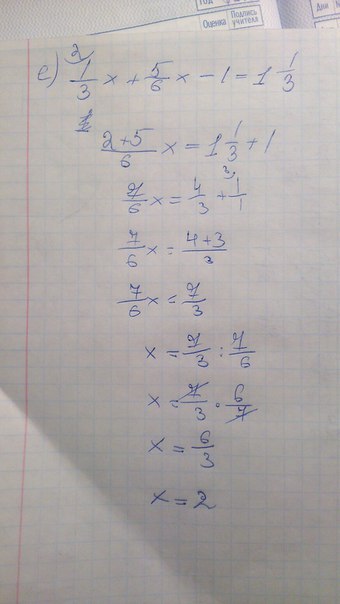 Оценка Подпись учителя
е) 1/3 x + 5/6 x - 1 = 1 1/3
(2+5)/6 x = 1 1/3 + 1
7/6 x = 4/3 + 1/1
7/6 x = (4+3)/3
7/6 x = 7/3
x = 7/3 : 7/6
x = 7/3 · 6/7
x = 6/3
x = 2